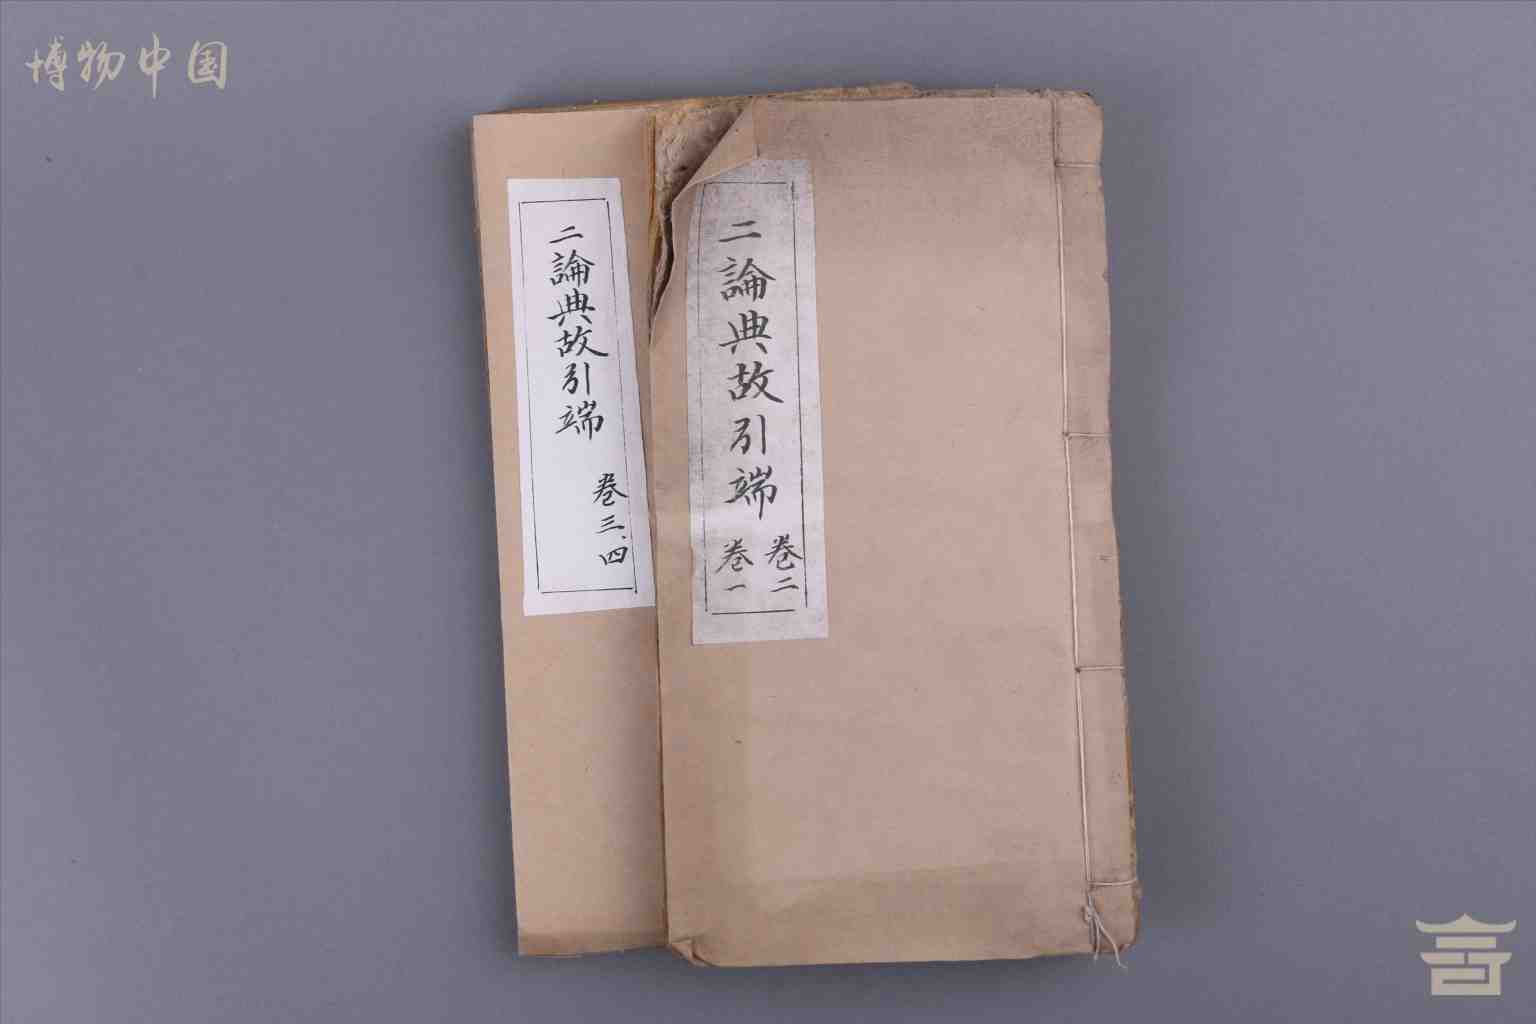 博物中国
二論典故引端
卷三、四
二論典故引端
卷二
卷一